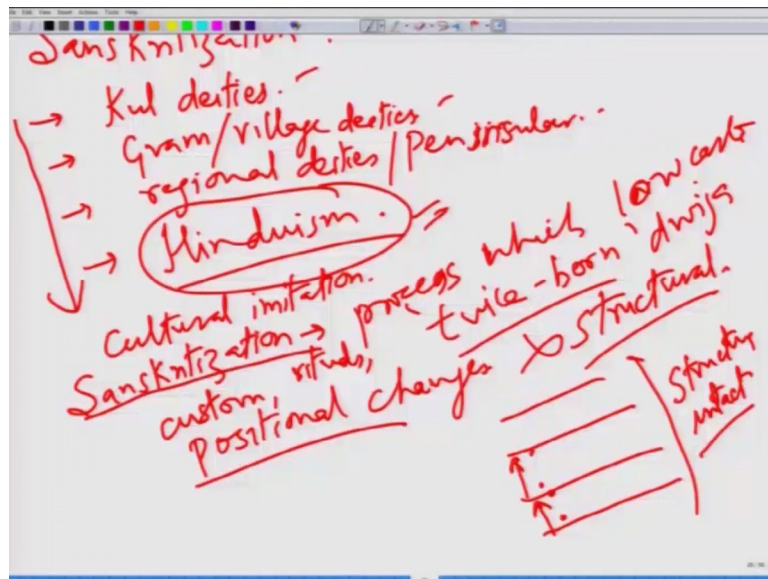 Sanskritization.
→ Kul deities.
→ Gram/village deities
→ regional deities / Peninsular..
→ Hinduism.
Cultural imitation.
Sanskritization → process which low caste
custom, rituals, twice-born 'dwija
Positional changes X Structural.
Structure
intact